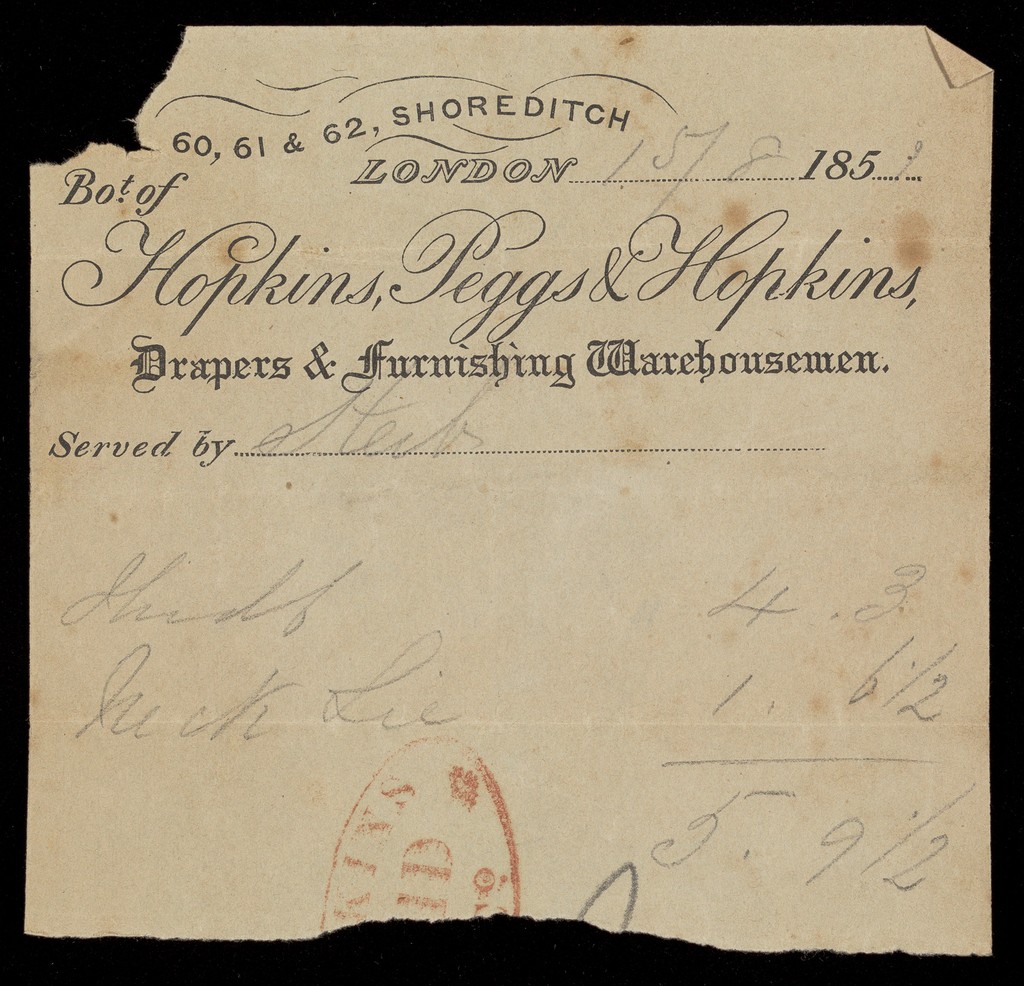 60, 61 & 62, SHOREDITCH
LONDON 15/8 1859
Bot. of
Hopkins, Peggs & Hopkins,
Drapers & Furnishing Warehousemen.
Served by
4.3
Neck Tie 1.6½
5.9½
KINS